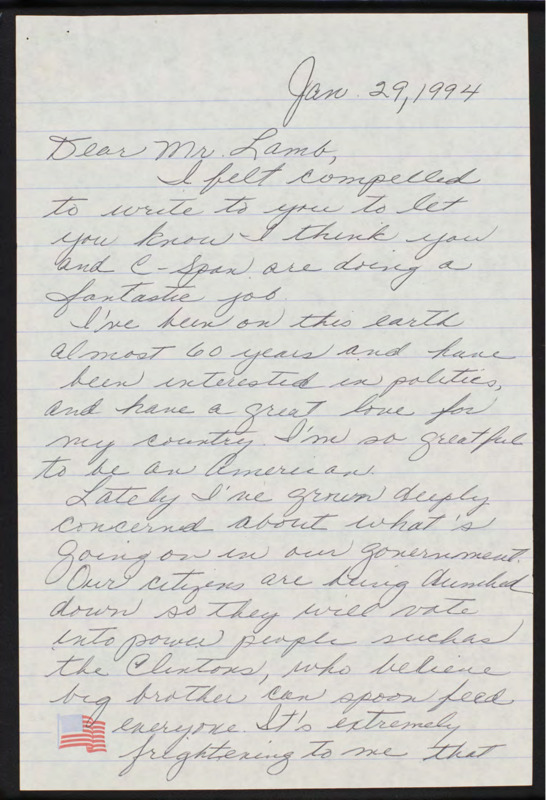 Jan. 29, 1994
Dear Mr. Lamb,
I felt compelled
to write to you to let
you know I think you
and C-Span are doing a
fantastic job.
I've been on this earth
almost 60 years and have
been interested in politics,
and have a great love for
my country. I'm so greatful
to be an American.
Lately I've grown deeply
concerned about what's
going on in our government.
Our citizens are being dumbed
down so they will vote
into power people such as
the Clintons, who believe
big brother can spoon feed
everyone. It's extremely
frightening to me that